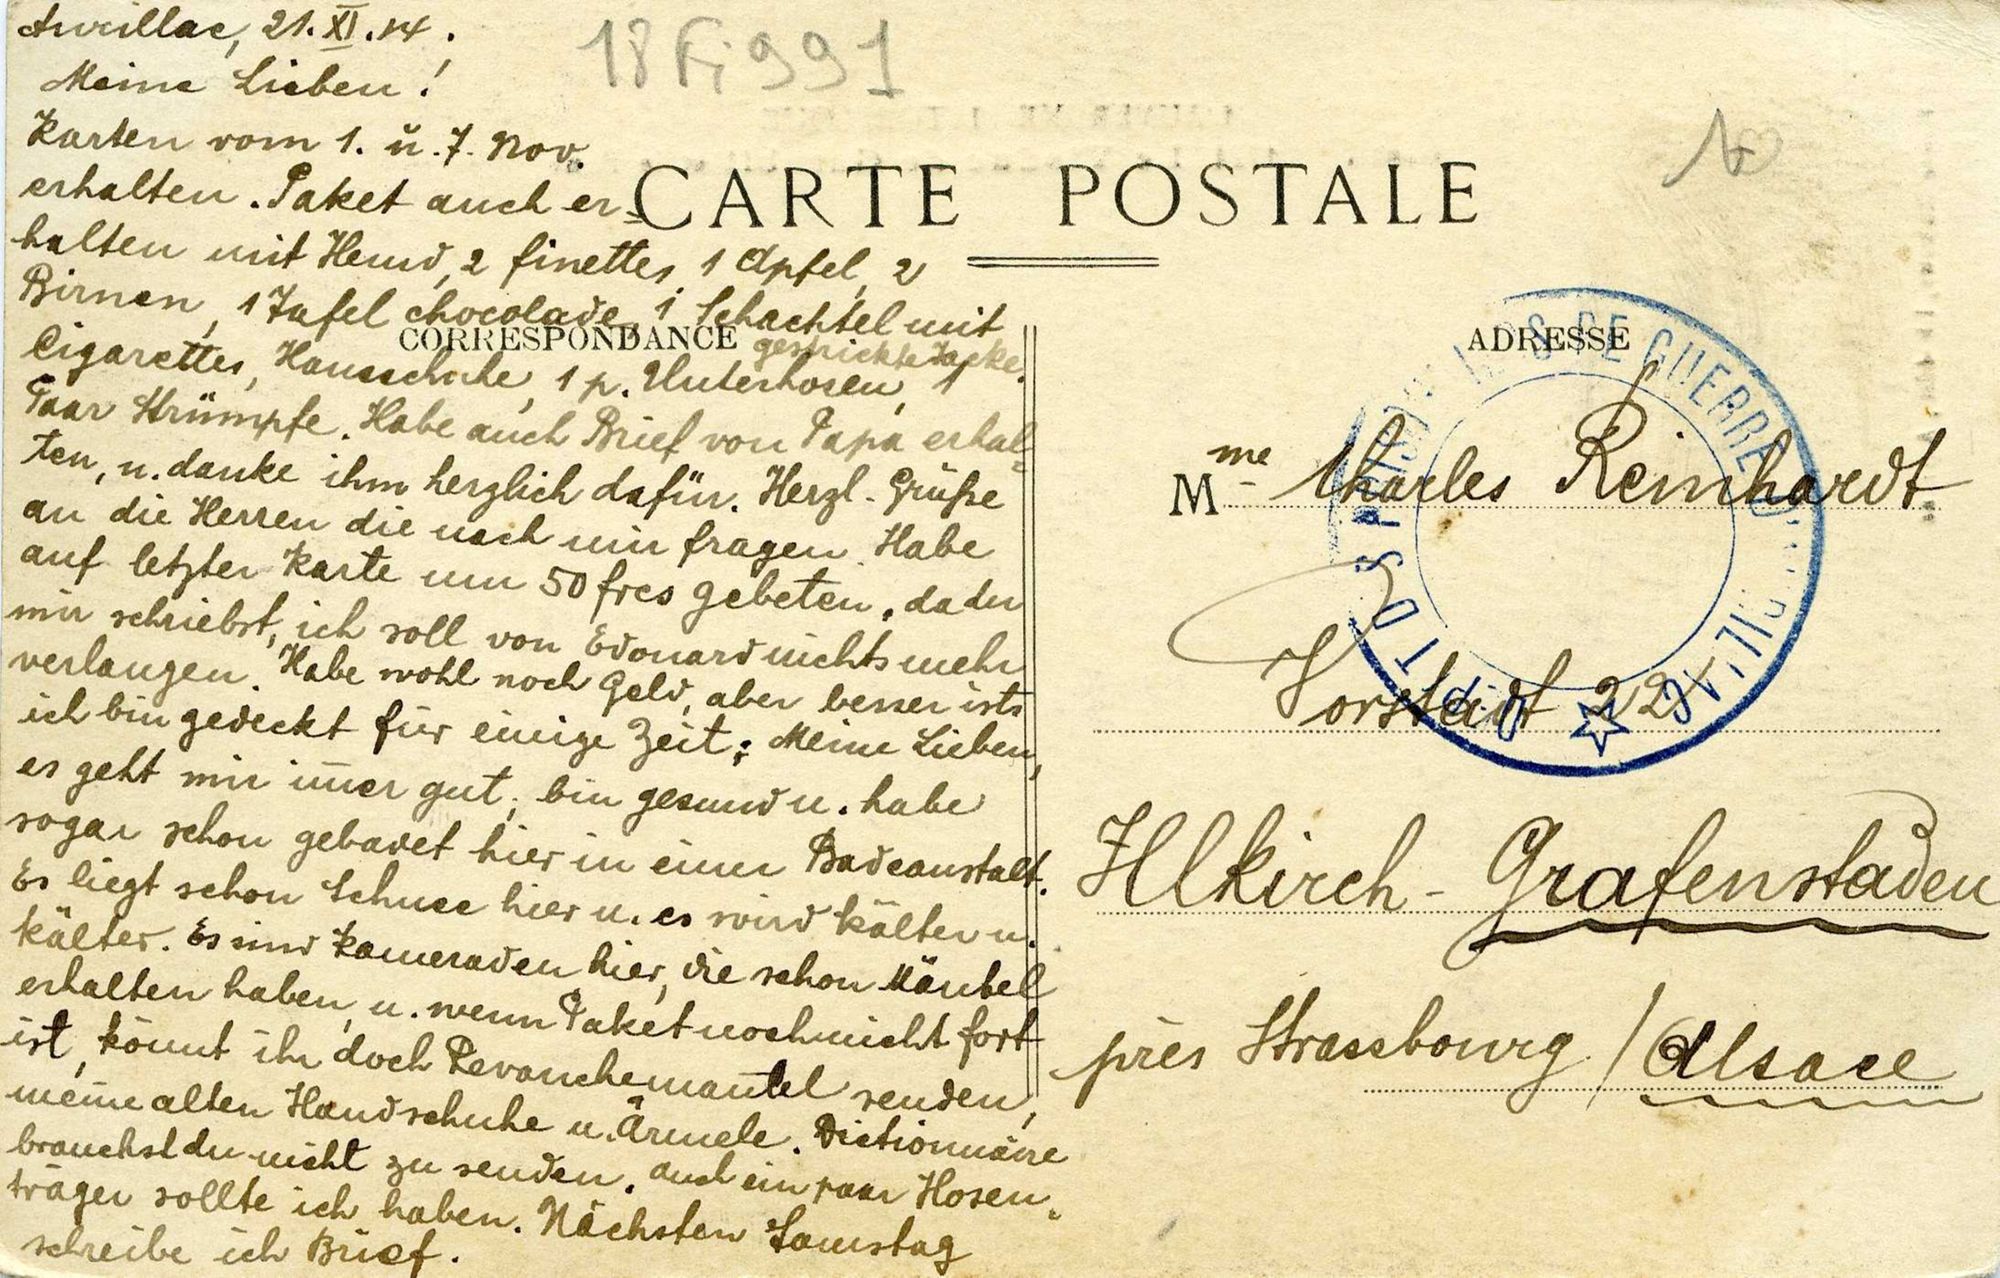 Aurillac, 21. XI. 14.
Meine Lieben!
Karten vom 1. u. 7. Nov.
erhalten. Paket auch er-
halten mit Hemd, 2 finettes, 1 Apfel, 2
Birnen, 1 Tafel chocolade, 1 Schachtel mit
Cigarettes, Hausschuhe, 1 p. Unterhosen, 1 gestrickte Jacke.
Paar Strümpfe. Habe auch Brief von Papa erhal-
ten, u. danke ihm herzlich dafür. Herzl. Grüße
an die Herren die nach mir fragen. Habe
auf letzter Karte um 50 frcs gebeten, da du
mir schriebst, ich soll von Edouard nichts mehr
verlangen. Habe wohl noch Geld, aber besser ists
ich bin gedeckt für einige Zeit; Meine Lieben,
es geht mir im̅er gut, bin gesund u. habe
sogar schon gebadet hier in einer Badeanstalt.
Es liegt schon Schnee hier u. es wird kälter u.
kälter. Es sind Kameraden hier, die schon Mäntel
erhalten haben, u. wenn Paket noch nicht fort
ist, könnt ihr doch Revanchemantel senden,
meine alten Handschuhe u. Ärmele. Dictionnaire
brauchst du nicht zu senden. Auch ein paar Hosen-
träger sollte ich haben. Nächsten Samstag
schreibe ich Brief.
18 Fi 991
CARTE POSTALE
CORRESPONDANCE
ADRESSE
Mme Charles Reinhardt
Vorstadt 22
Illkirch-Grafenstaden
près Strassbourg / Alsace
DÉPÔT DES PRISONNIERS DE GUERRE D'AURILLAC